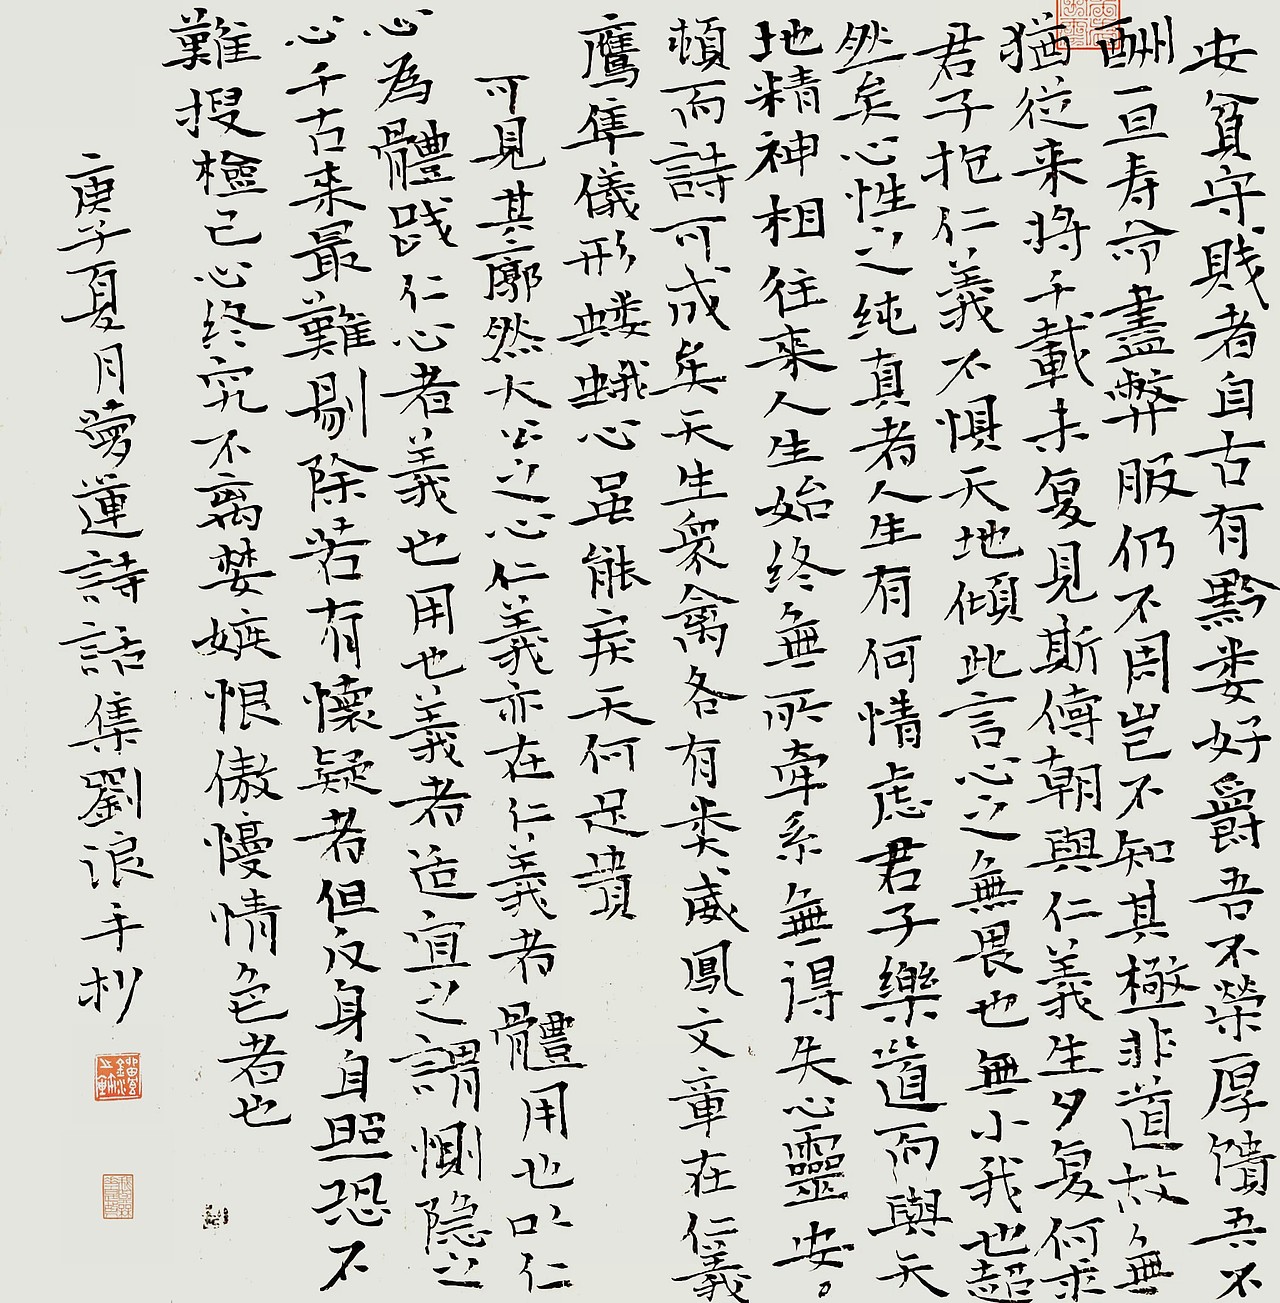 安貧守賤者自古有黔娄好爵吾不榮厚馈吾不
酬一旦寿命盡弊服仍不周岂不知其極非道故無
猶從来將千載未复見斯儔朝與仁義生夕复何求
君子抱仁義不惧天地傾此言心之無畏也無小我也超
然矣心性之纯真者人生有何情虑君子樂道而與天
地精神相往来人生始终無所牵系無得失心靈安。
頓而詩可成矣天生衆禽各有类威鳳文章在仁義
鷹隼儀形蝼蛾心虽能戾天何足貴
可見其廓然大公之心仁義亦在仁義者體用也以仁
心為體践仁心者義也用也義者适宜之謂惻隐之
心千古来最難剔除若有懷疑者但反身自照恐不
難搜檢己心终究不离婪嫉恨傲慢情色者也
庚子夏月夢蓮詩話集劉浪手抄